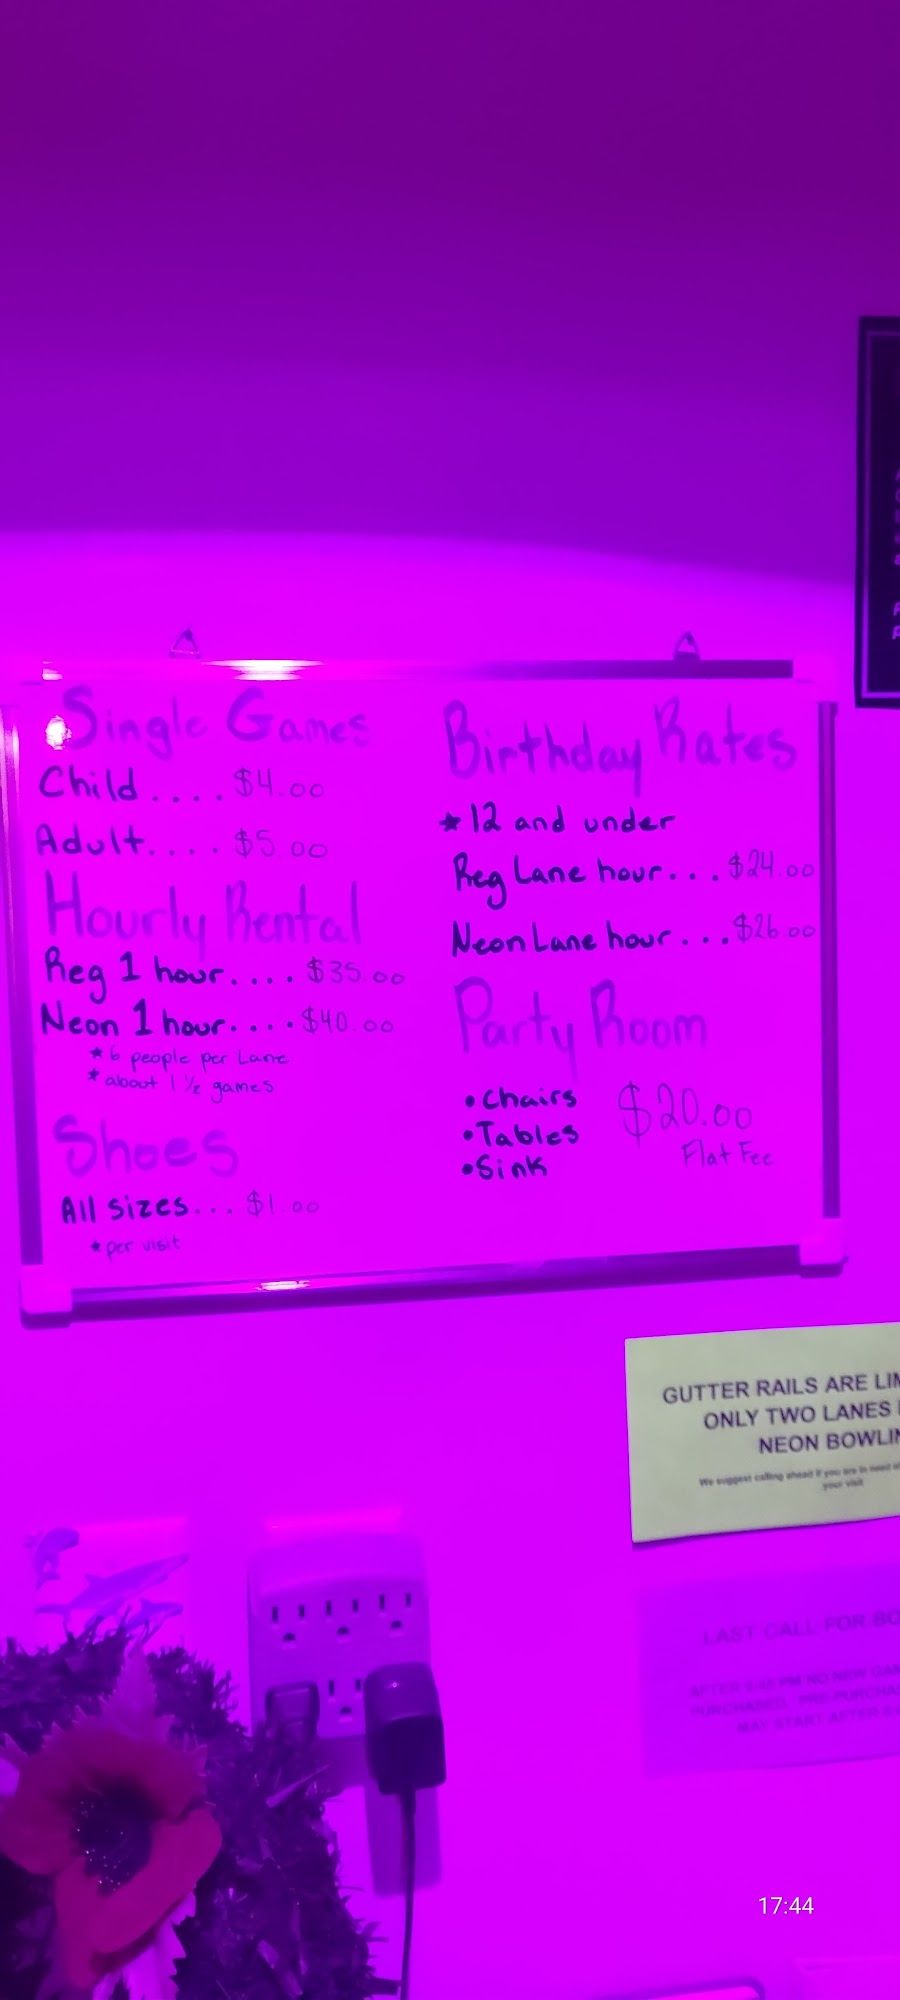 Single Games
Child .... $4.00
Adult.... $5.00
Hourly Rental
Reg 1 hour.... $35.00
Neon 1 hour.... $40.00
* 6 people per Lane
* about 1 ½ games
Shoes
All sizes... $1.00
* per visit
Birthday Rates
★ 12 and under
Reg Lane hour... $24.00
Neon Lane hour... $26.00
Party Room
• Chairs
• Tables
• Sink
$20.00
Flat Fee
GUTTER RAILS ARE LIM
ONLY TWO LANES
NEON BOWLIN
We suggest calling ahead if you are in need
your visit
LAST CALL FOR BO
AFTER PM NO NEW GAM
PURCHASED. PRE-PURCHA
MAY START AFTER
17:44